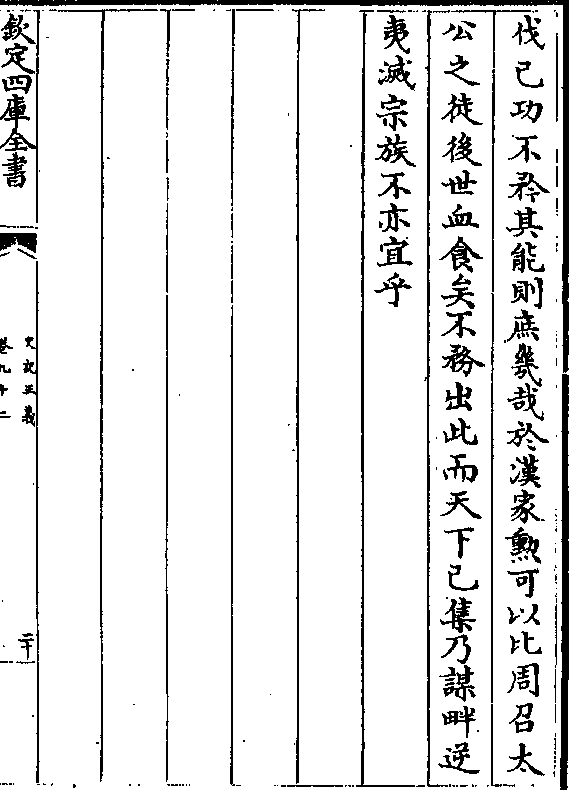 伐己功不矜其能則庶幾哉於漢家勲可以比周召太
公之徒後世血食矣不務出此而天下已集乃謀畔逆
夷滅宗族不亦宜乎
欽定四庫全書
史記正義
卷九十二
二十